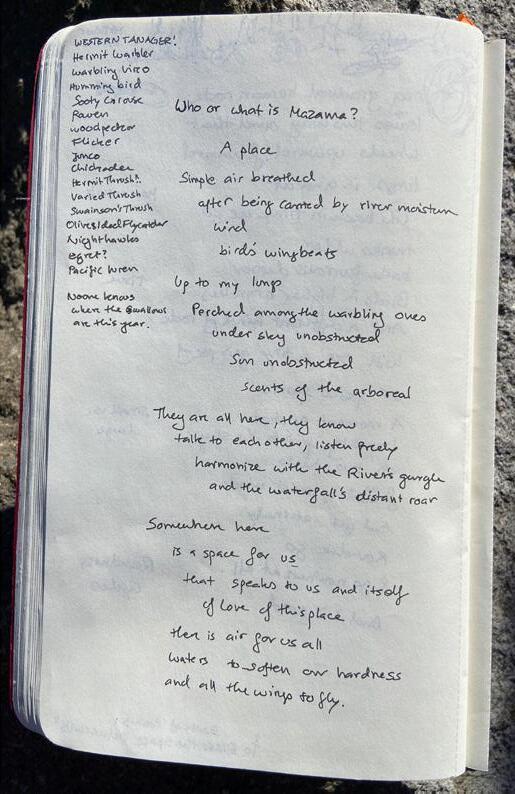 WESTERN TANAGER!
Hermit Warbler
Warbling Vireo
Humming bird
Sooty Grouse
Raven
woodpecker
Flicker
Junco
Chickadee
Hermit Thrush!
Varied Thrush
Swainson's Thrush
Olive sided Flycatcher
Nighthawks
egret?
Pacific Wren
No one knows
where the swallows
are this year.
Who or what is Mazama?
A place
Simple air breathed
after being carried by river moisture
wind
birds' wingbeats
Up to my lungs
Perched among the warbling ones
under sky unobstructed
Sun unobstructed
scents of the arboreal
They are all here, they know
talk to each other, listen freely
harmonize with the River's gurgle
and the waterfall's distant roar
Somewhere here
is a space for us
that speaks to us and itself
of love of this place
there is air for us all
waters to soften our hardness
and all the wings to fly.